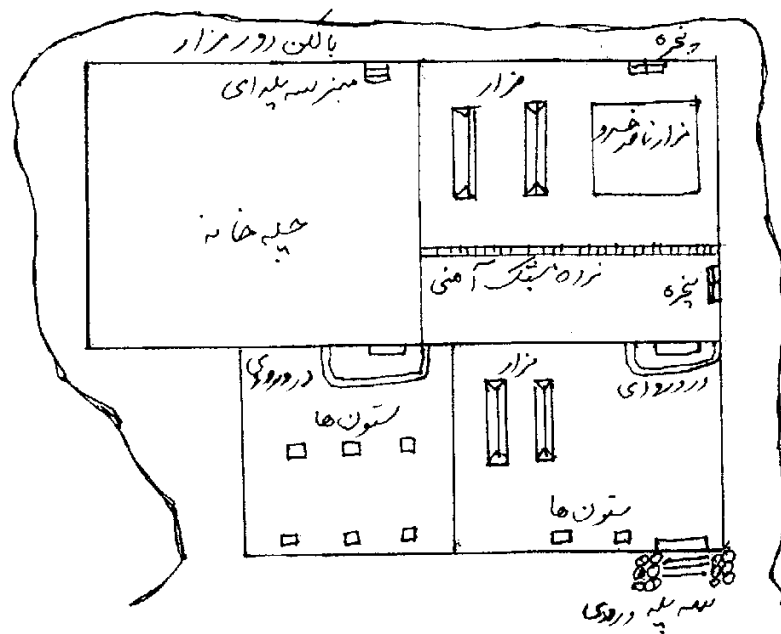 بالکن دور مزار
پنجره
منبر سه پله ای
مزار
مزار ناصر خسرو
چله خانه
نرده مشبک آهنی
پنجره
در ورودی
مزار
در ورودی
ستون ها
ستون ها
سه پله ورودی